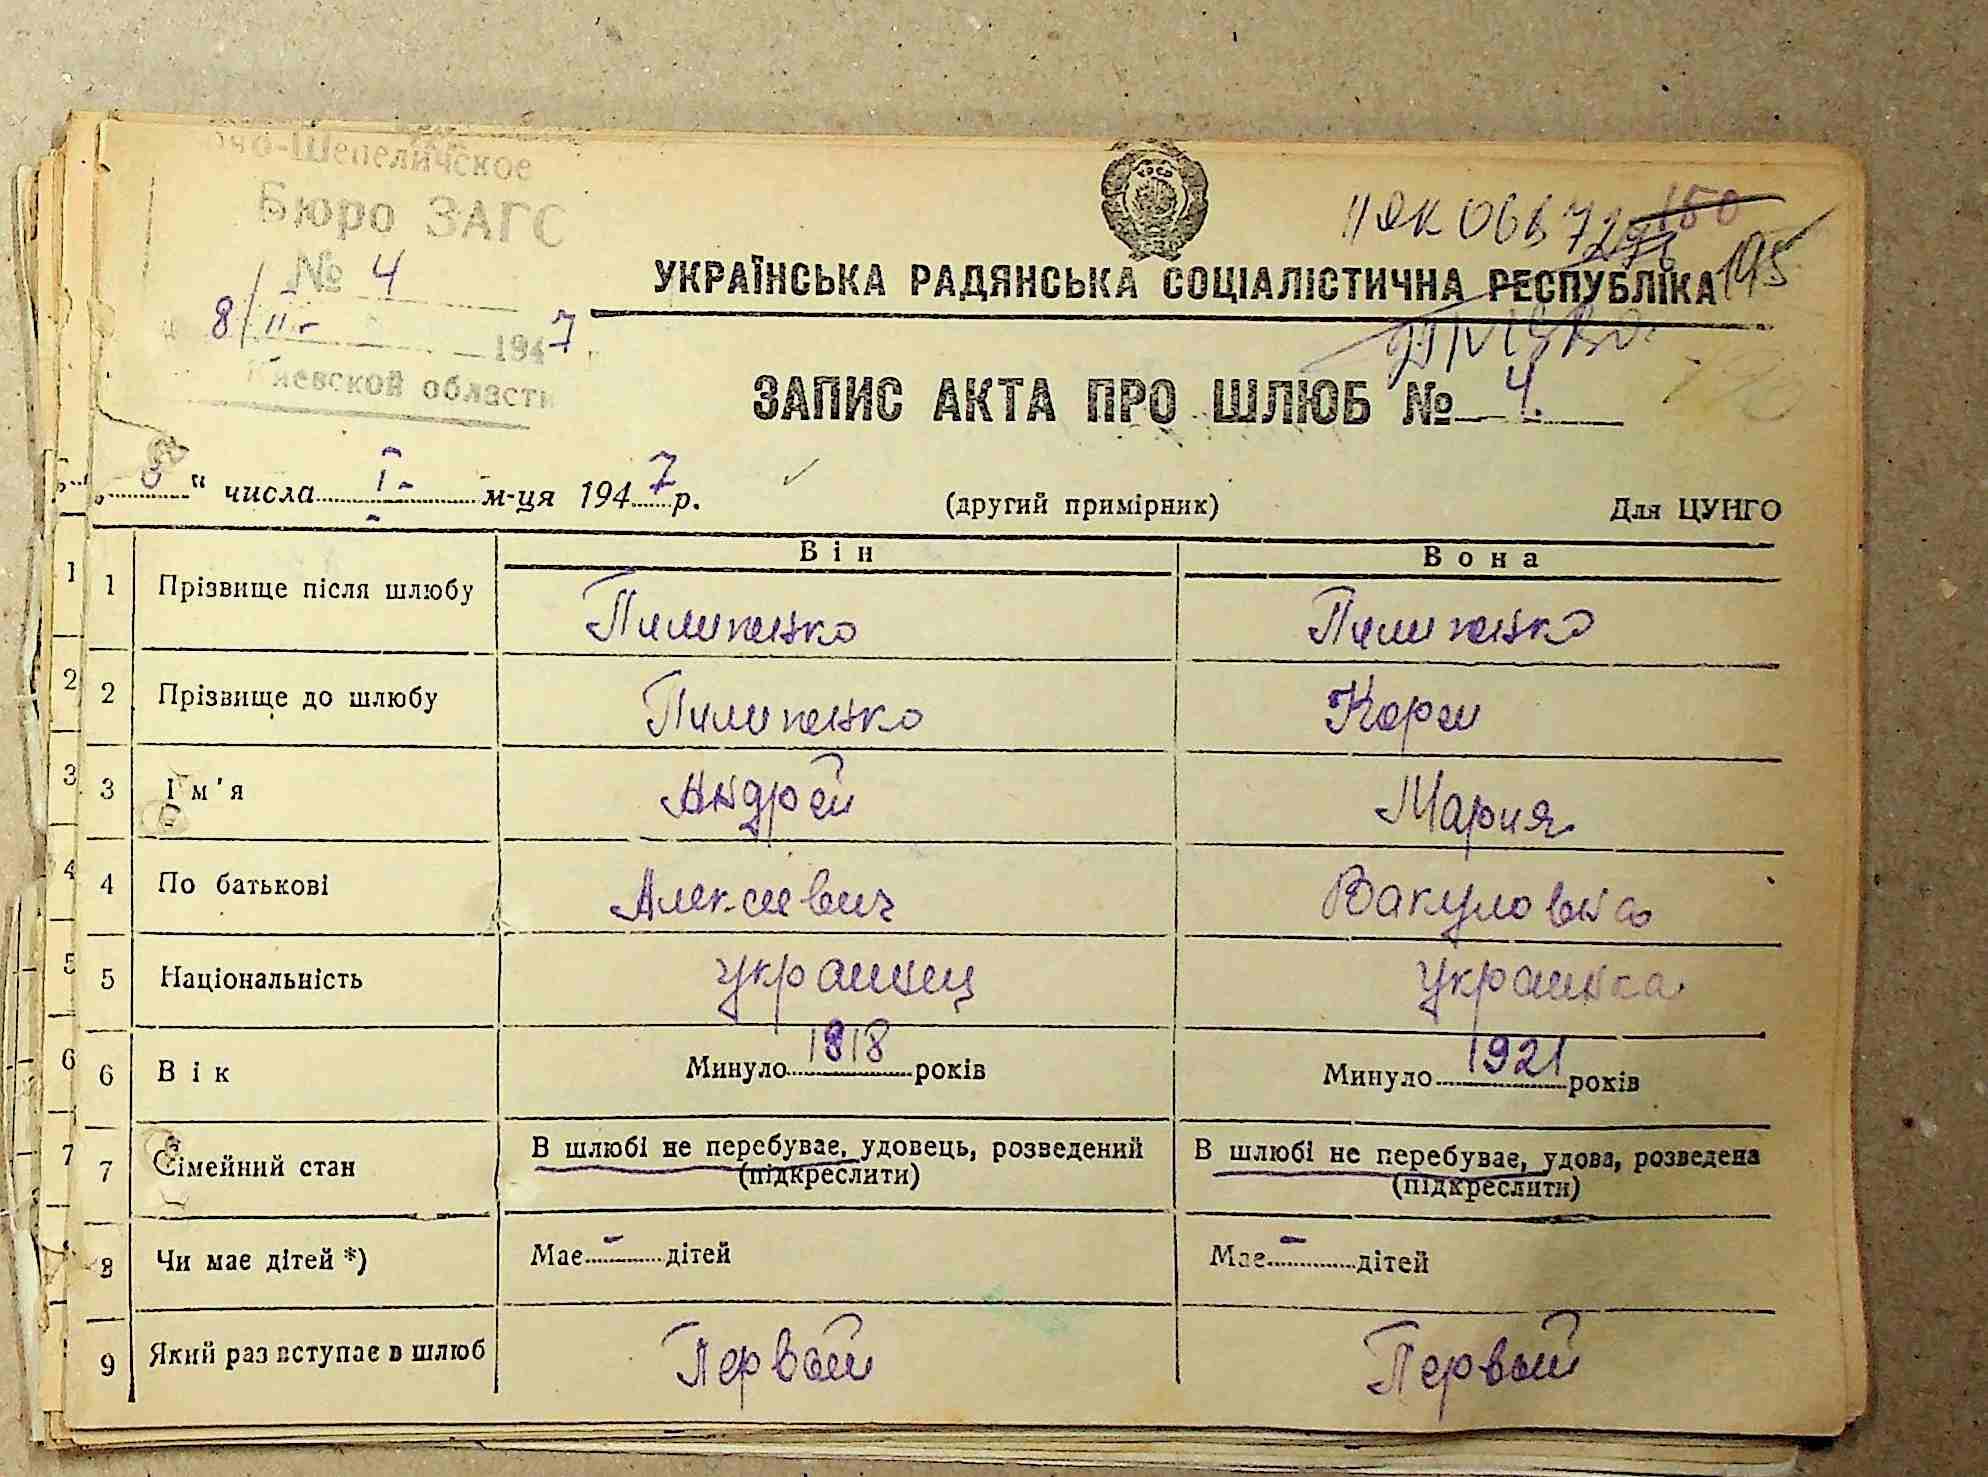 но-Шепеличское
Бюро ЗАГС
№ 4
8/II 1947
Киевской области
150
145
УКРАЇНСЬКА РАДЯНСЬКА СОЦІАЛІСТИЧНА РЕСПУБЛІКА
ЗАПИС АКТА ПРО ШЛЮБ № 4.
" числа I- м-ця 1947 р.
(другий примірник)
Для ЦУНГО
Він Вона
1 1 Прізвище після шлюбу Пилипенко Пилипенко
2 2 Прізвище до шлюбу Пилипенко
3 3 Ім'я Андрей Мария
4 4 По батькові Алексеевич Вакуловна
5 5 Національність украинец украинка
6 6 Вік Минуло 1918 років Минуло 1921 років
7 7 Сімейний стан В шлюбі не перебуває, удовець, розведений В шлюбі не перебуває, удова, розведена
(підкреслити) (підкреслити)
8 Чи має дітей *) Має - дітей Має - дітей
9 Який раз вступає в шлюб Первый Первый